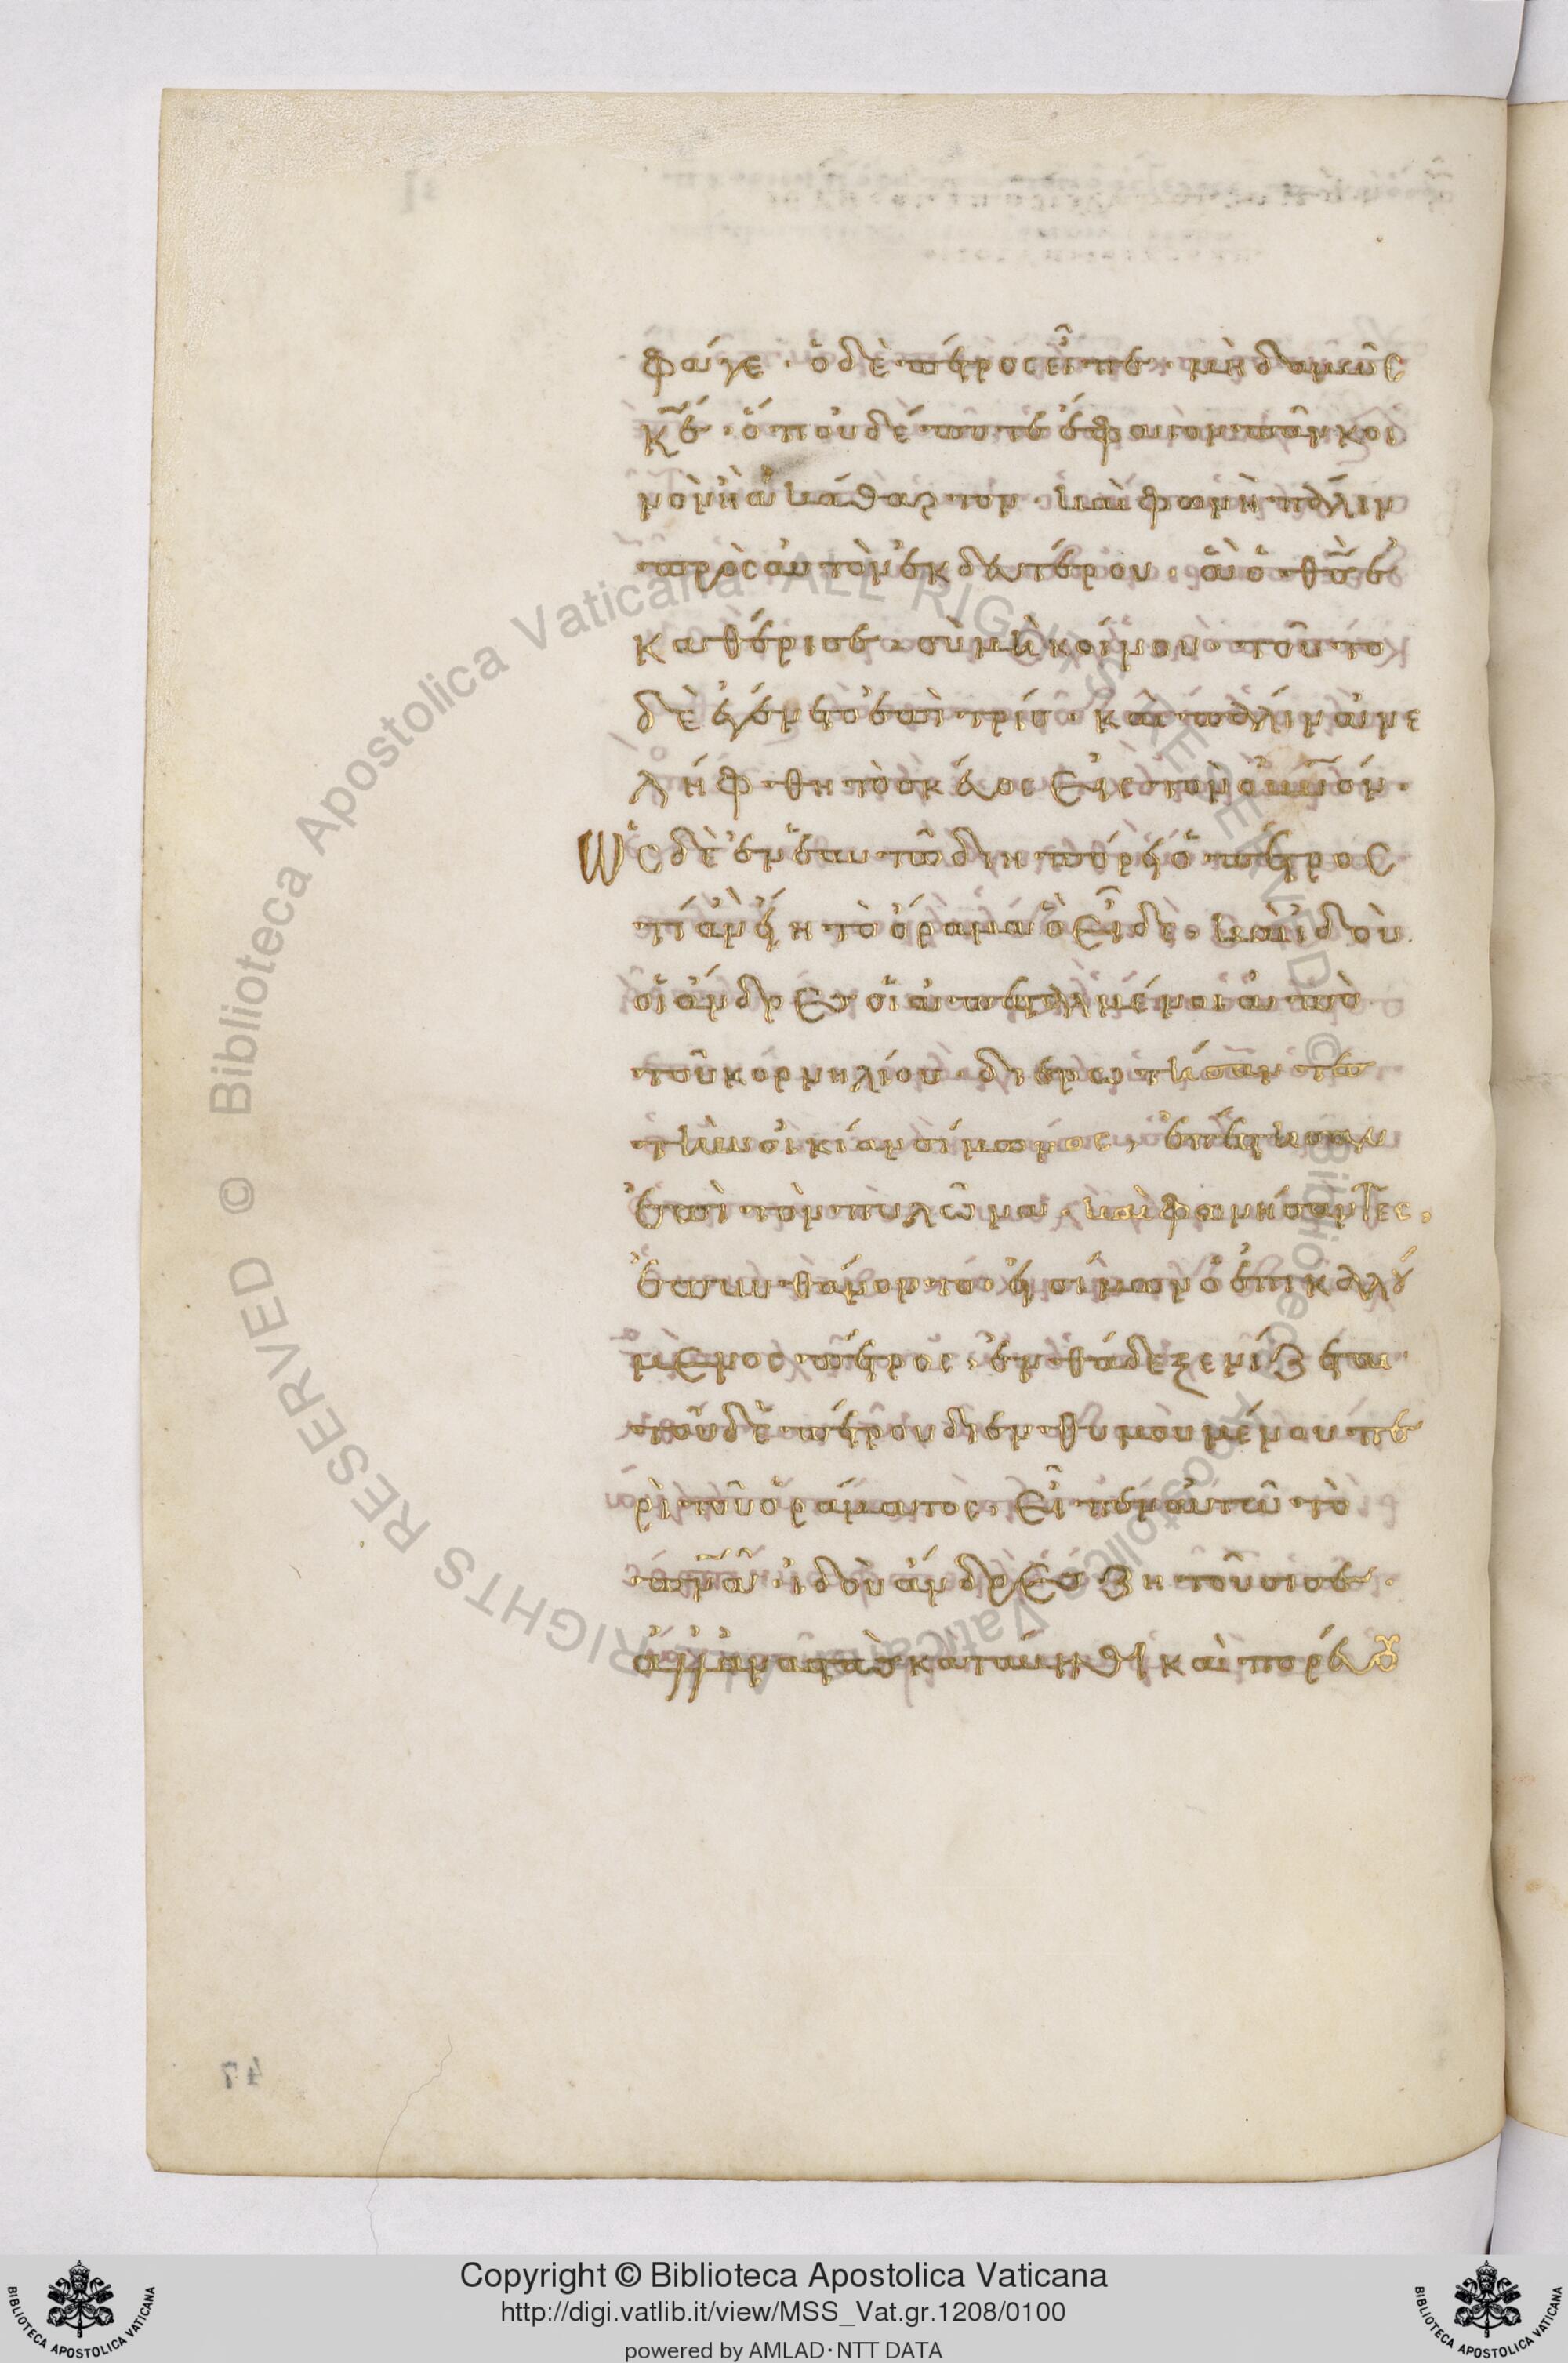 φάγε· ὁ δὲ πέτρος εἶπε· μηδαμῶς
κ̅ε̅· ὅτι οὐδέποτε ἔφαγον πᾶν κοι
νὸν ἢ ἀκάθαρτον· καὶ φωνὴ πάλιν
πρὸς αὐτὸν ἐκ δευτέρου· ἃ ὁ θ̅ς̅ ἐ
καθέρισε, σὺ μὴ κοίνου· τοῦτο
δὲ ἐγένετο ἐπὶ τρίς· καὶ πάλιν ἀνε
λήφθη τὸ σκεῦος εἰς τὸν οὐ̅ν̅όν·
Ὡς δὲ ἐν ἑαυτῶ διηπόρει ὁ πέτρος
τί ἂν εἴη τὸ ὅραμα ὃ εἶδε· καὶ ἰδοὺ
οἱ ἄνδρες οἱ ἀπεσταλμένοι ἀπὸ
τοῦ κορνηλίου· διερωτήσαντες
τὴν οἰκίαν σίμωνος, ἐπέστησαν
ἐπὶ τὸν πυλῶνα· καὶ φωνήσαντες,
ἐπυνθάνοντο· εἰ σίμων ὁ ἐπικαλού
μενος πέτρος, ἐνθάδε ξενίζεται·
τοῦ δὲ πέτρου διενθυμουμένου πε
ρὶ τοῦ ὁράματος· εἶπεν αὐτῶ τὸ
π̅ν̅α̅· ἰδοὺ ἄνδρες ζητοῦσι σε·
ἀλλὰ ἀναστὰς κατάβηθι καὶ πορεύου
47
Copyright © Biblioteca Apostolica Vaticana
http://digi.vatlib.it/view/MSS_Vat.gr.1208/0100
powered by AMLAD·NTT DATA
BIBLIOTECA APOSTOLICA VATICANA
BIBLIOTECA APOSTOLICA VATICANA
© Biblioteca Apostolica Vaticana ALL RIGHTS RESERVED © Biblioteca Apostolica Vaticana ALL RIGHTS RESERVED